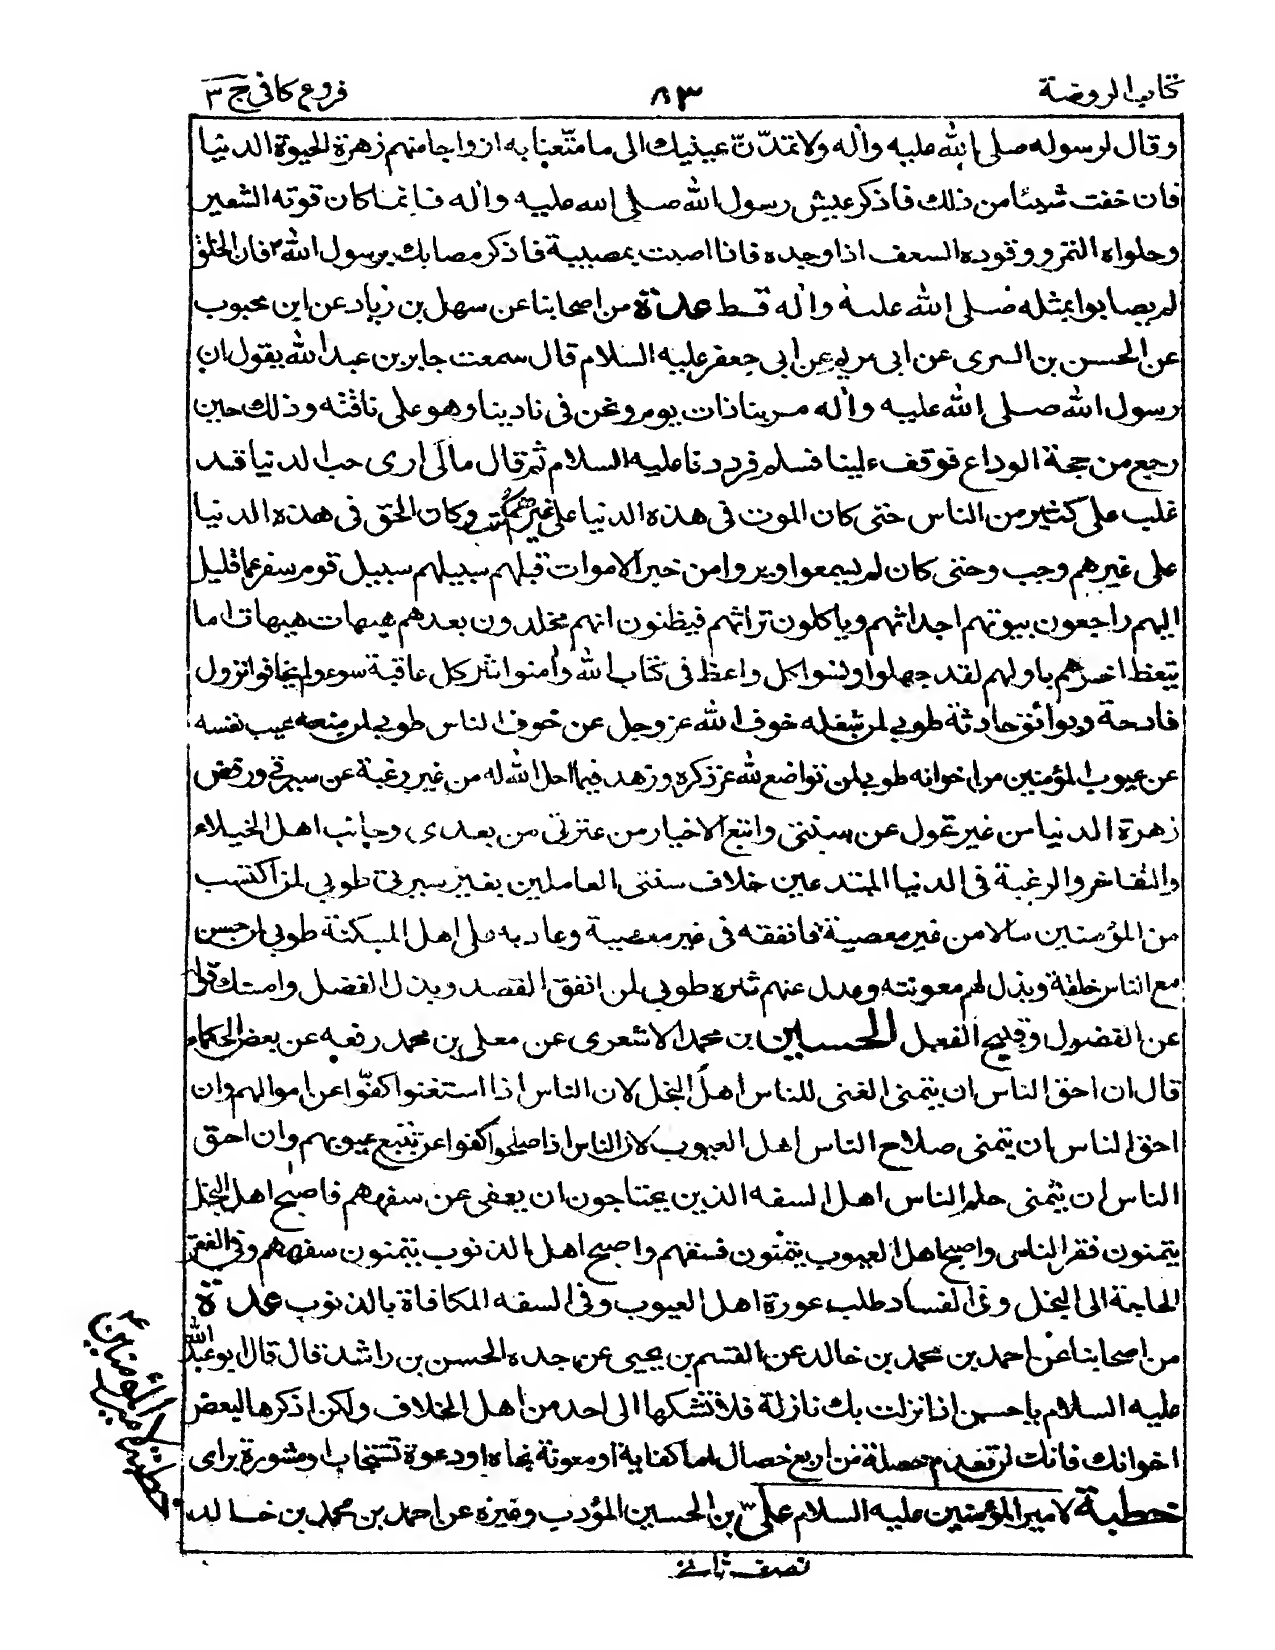 كتاب الروضة
٨٣
فروع كافى ج ٣
وقال لرسوله صلى الله عليه وآله ولا تمدّنّ عينيك الى ما متّعنا به ازواجا منهم زهرة الحيوة الدنيا
فان خفت شيئا من ذلك فاذكر عيش رسول الله صلى الله عليه وآله فانما كان قوته الشعير
وحلواه التمر ووقوده السعف اذا وجده فاذا اصبت بمصيبة فاذكر مصابك برسول الله ؐ فان الخلق
لم يصابوا بمثله صلى الله عليه وآله قط عدة من اصحابنا عن سهل بن زياد عن ابن محبوب
عن الحسن بن السرى عن ابى مريم عن ابى جعفر عليه السلام قال سمعت جابر بن عبد الله يقول ان
رسول الله صلى الله عليه وآله مر بنا ذات يوم ونحن فى نادينا وهو على ناقته وذلك حين
رجع من حجة الوداع فوقف علينا فسلم فرددنا عليه السلام ثم قال مالى ارى حب الدنيا قد
غلب على كثير من الناس حتى كان الموت فى هذه الدنيا على غيرهم كتب وكان الحق فى هذه الدنيا
على غيرهم وجب وحتى كان لم يسمعوا ويروا من خبر الاموات قبلهم سبيلهم سبيل قوم سفر عما قليل
اليهم راجعون بيوتهم اجداثهم وياكلون تراثهم فيظنون انهم مخلدون بعدهم هيهات هيهات اما
يتعظ اخرهم باولهم لقد جهلوا ونسوا كل واعظ فى كتاب الله وآمنوا شر كل عاقبة سوء ولم يخافوا نزول
فادحة وبوائق حادثة طوبى لمن شغله خوف الله عز وجل عن خوف الناس طوبى لمن منعه عيب نفسه
عن عيوب المؤمنين من اخوانه طوبى لمن تواضع لله عز ذكره وزهد فيما احل الله له من غير رغبة عن سيرتى ورفض
زهرة الدنيا من غير تحول عن سنتى واتبع الاخيار من عترتى من بعدى وجانب اهل الخيلاء
والتفاخر والرغبة فى الدنيا المبتدعين خلاف سنتى العاملين بغير سيرتى طوبى لمن اكتسب
من المؤمنين مالا من غير معصية فانفقه فى غير معصية وعاد به على اهل المسكنة طوبى لمن حسن
مع الناس خلقه وبذل لهم معونته وعدل عنهم شره طوبى لمن انفق القصد وبذل الفضل وامسك قوله
عن الفضول وقبيح الفعل الحسين بن محمد الاشعرى عن معلى بن محمد رفعه عن بعض الحكماء
قال ان احق الناس ان يتمنى الغنى للناس اهل البخل لان الناس اذا استغنوا كفّوا عن اموالهم وان
احق الناس ان يتمنى صلاح الناس اهل العيوب لان الناس اذا صلحوا كفوا عن تتبع عيوبهم وان احق
الناس ان يتمنى حلم الناس اهل السفه الذين يحتاجون ان يعفى عن سفههم فاصبح اهل البخل
يتمنون فقر الناس واصبح اهل العيوب يتمنون فسقهم واصبح اهل الذنوب يتمنون سفههم وفى الفقر
الحاجة الى البخل وفى الفساد طلب عورة اهل العيوب وفى السفه المكافاة بالذنوب عدة
من اصحابنا عن احمد بن محمد بن خالد عن القسم بن يحيى عن جده الحسن بن راشد قال قال ابو عبد الله
عليه السلام يا حسن اذا نزلت بك نازلة فلا تشكها الى احد من اهل الخلاف ولكن اذكرها لبعض
اخوانك فانك لن تعدم خصلة من اربع خصال اما كفاية او معونة بجاه او دعوة تستجاب او مشورة براى
خطبة لامير المؤمنين عليه السلام على بن الحسين المؤدب وغيره عن احمد بن محمد بن خالد
خطبة لامير المؤمنين ع
نصف ثانى